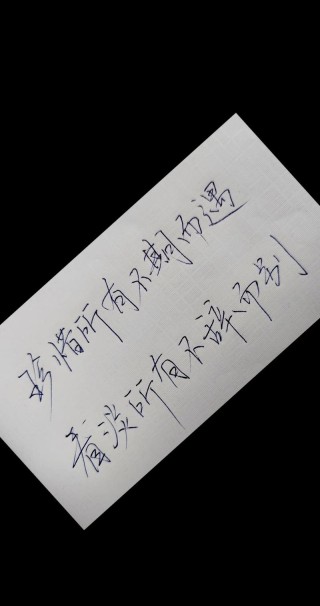 珍惜所有不期而遇
看淡所有不辞而别